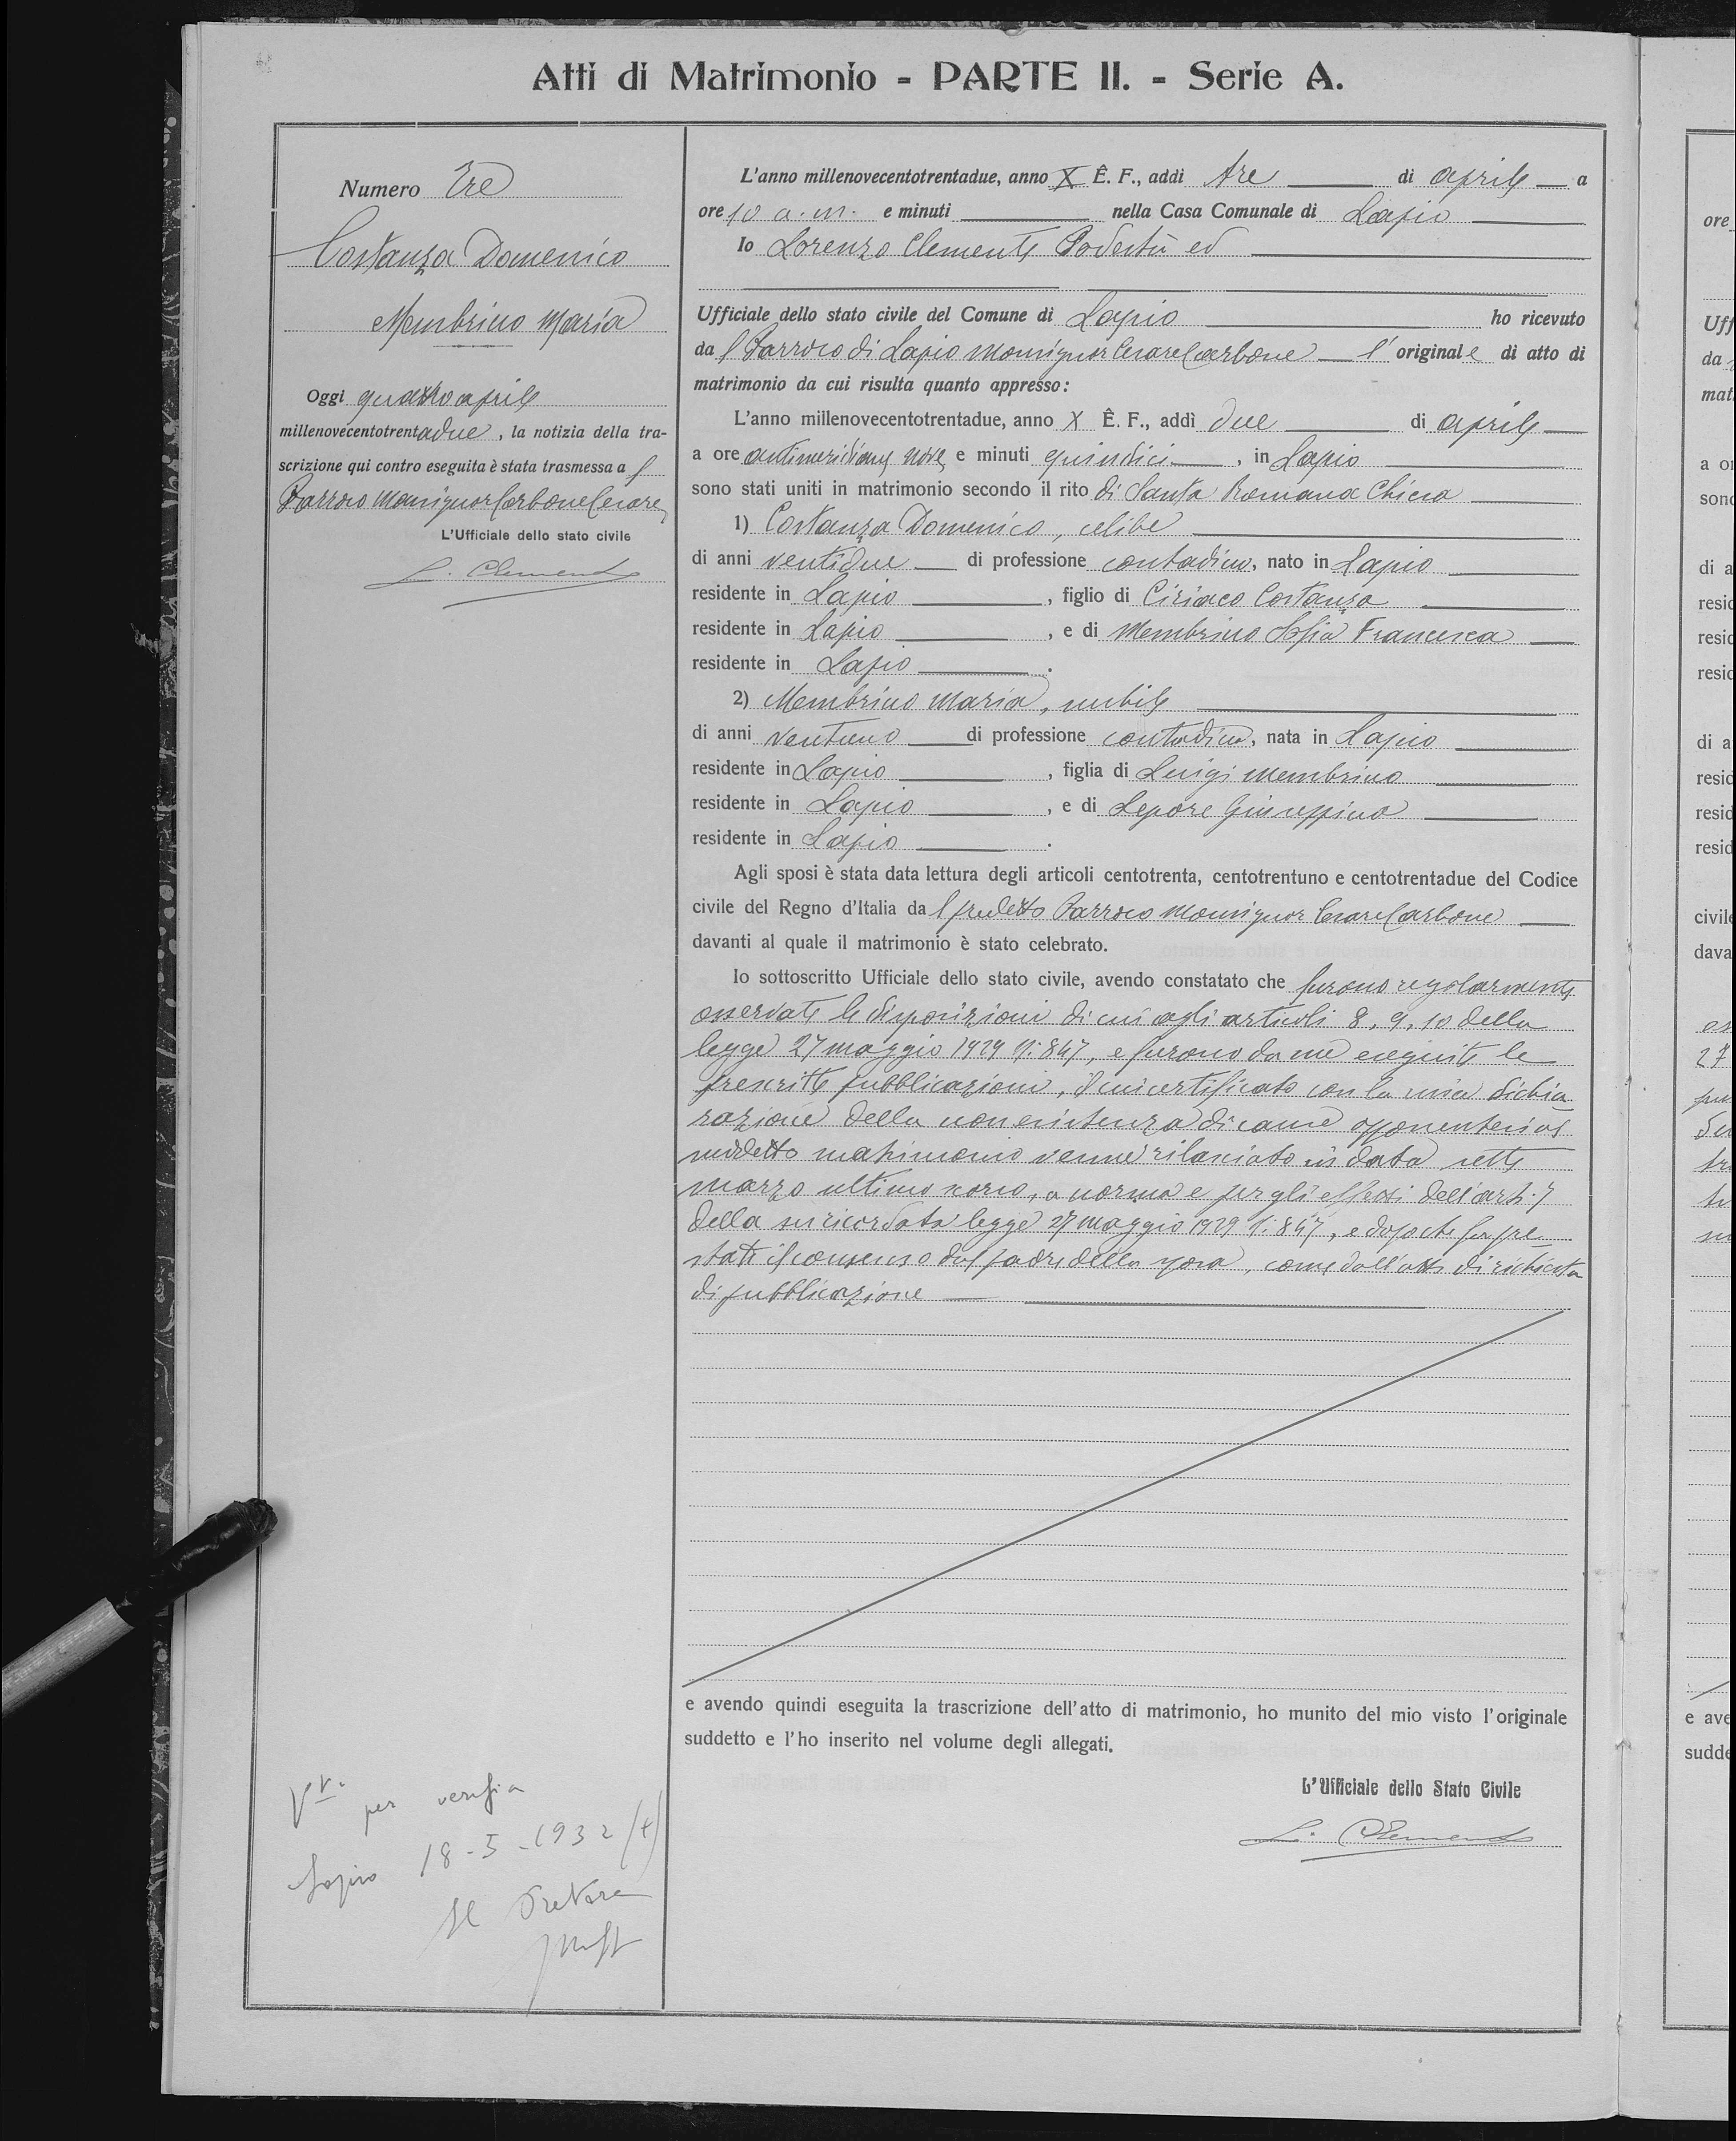 Atti di Matrimonio - PARTE II. - Serie A.
Numero Tre
Costanza Domenico
Membrino Maria
Oggi quattro aprile
millenovecentotrentadue, la notizia della tra-
scrizione qui contro eseguita è stata trasmessa al
Parroco Monsignor Carbone Cesare
L'Ufficiale dello stato civile
L. Clemente
L'anno millenovecentotrentadue, anno X E. F., addì tre di aprile a
ore 10 a.m. e minuti nella Casa Comunale di Lapio
Io Lorenzo Clemente Podestà ed
Ufficiale dello stato civile del Comune di Lapio ho ricevuto
dal Parroco di Lapio Monsignor Cesare Carbone l'originale di atto di
matrimonio da cui risulta quanto appresso:
L'anno millenovecentotrentadue, anno X E. F., addì due di aprile
a ore antimeridiane nove e minuti quindici, in Lapio
sono stati uniti in matrimonio secondo il rito di Santa Romana Chiesa
1) Costanza Domenico, celibe
di anni ventidue di professione contadino, nato in Lapio
residente in Lapio, figlio di Ciriaco Costanza
residente in Lapio, e di Membrino Sofia Francesca
residente in Lapio.
2) Membrino Maria, nubile
di anni ventuno di professione contadina, nata in Lapio
residente in Lapio, figlia di Luigi Membrino
residente in Lapio, e di Lepore Giuseppina
residente in Lapio.
Agli sposi è stata data lettura degli articoli centotrenta, centotrentuno e centotrentadue del Codice
civile del Regno d'Italia dal predetto Parroco Monsignor Cesare Carbone
davanti al quale il matrimonio è stato celebrato.
Io sottoscritto Ufficiale dello stato civile, avendo constatato che furono regolarmente
osservate le disposizioni di cui agli articoli 8, 9, 10 della
legge 27 maggio 1929 N: 847, e furono da me eseguite le
prescritte pubblicazioni, il cui certificato con la mia dichia
razione della non esistenza di cause opponentesi al
suddetto matrimonio venne rilasciato in data sette
marzo ultimo scorso, a norma e per gli effetti dell'art. 7
della su ricordata legge 27 maggio 1929 N: 847, e dopo che fu pre
stato il consenso dal padre della sposa, come dall'atto di richiesta
di pubblicazione
e avendo quindi eseguita la trascrizione dell'atto di matrimonio, ho munito del mio visto l'originale
suddetto e l'ho inserito nel volume degli allegati.
L'Ufficiale dello Stato Civile
L. Clemente
per verifica
Lapio 18-5-1932
Il Pretore